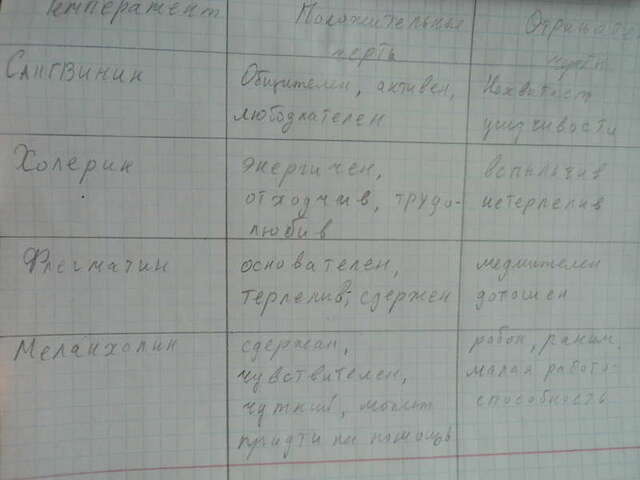 Темперамент Положительная черта Отрицате черта
Сангвиник
Общителен, активен,
любознателен
Нехватает
усидчивости
Холерик
энергичен,
отходчив, трудо-
любив
вспыльчив
нетерпелив
Флегматик
основателен,
терпелив, сдержен
медлителен
дотошен
Меланхолик
сдержан,
чувствителен,
чуткий, может
придти на помощь
робок, раним,
малая работо-
способность